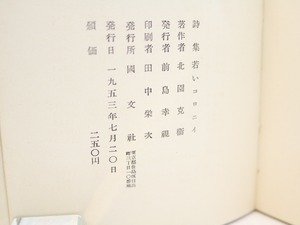 詩集 若いコロニイ
著作者 北園克衛
発行者 前島幸視
印刷者 田中栄次
発行所 國文社
発行日 一九五三年七月二〇日
價価 二五〇円